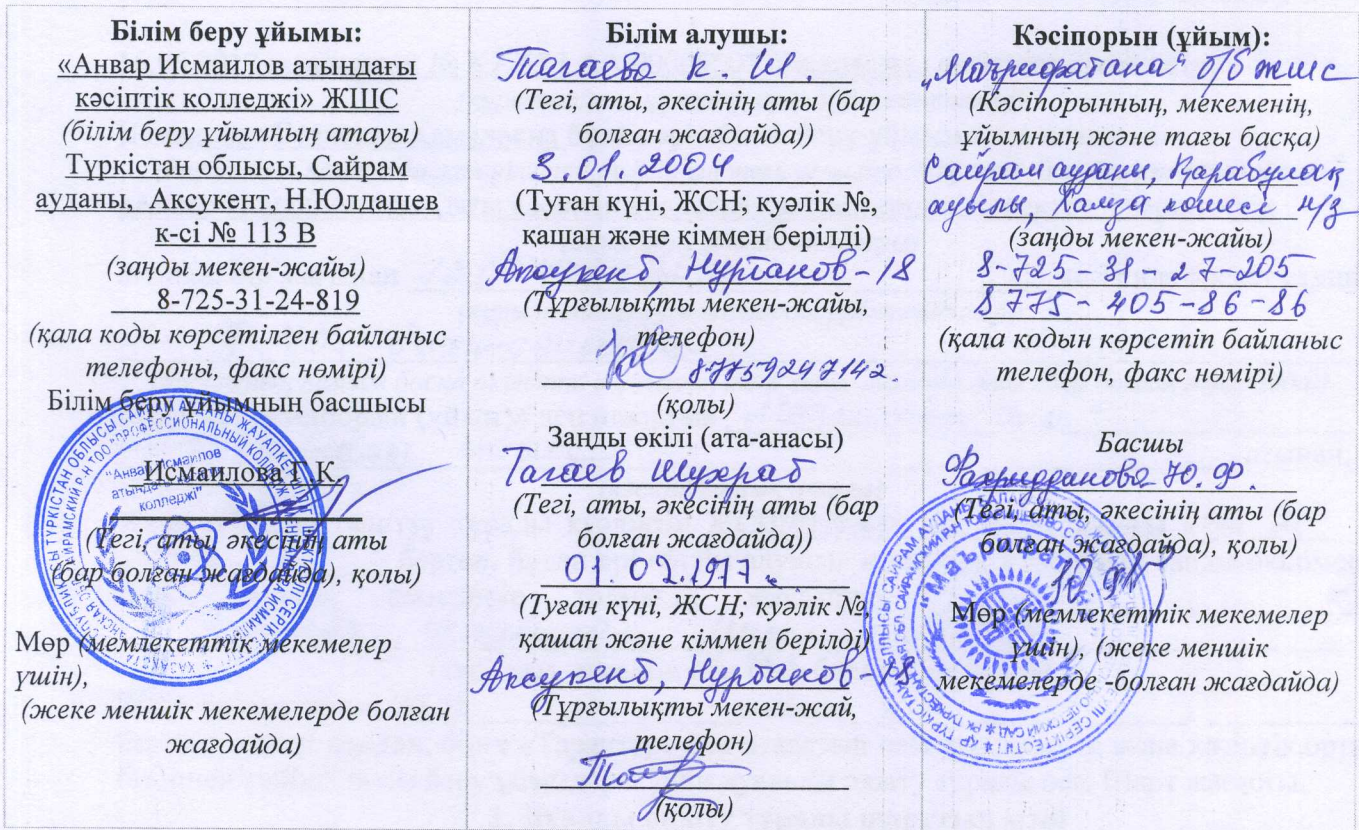 Білім беру ұйымы:
«Анвар Исмаилов атындағы
кәсіптік колледжі» ЖШС
(білім беру ұйымның атауы)
Түркістан облысы, Сайрам
ауданы, Аксукент, Н.Юлдашев
к-сі № 113 В
(заңды мекен-жайы)
8-725-31-24-819
(қала коды көрсетілген байланыс
телефоны, факс нөмірі)
Білім беру ұйымның басшысы
"Анвар Исмаилов
атындағы кәсіптік
колледжі"
Исмаилова Г.К.
(Тегі, аты, әкесінің аты
(бар болған жағдайда), қолы)
Мөр (мемлекетттік мекемелер
үшін),
(жеке меншік мекемелерде болған
жағдайда)
Білім алушы:
Тагаева К. Ш.
(Тегі, аты, әкесінің аты (бар
болған жағдайда))
3.01.2004
(Туған күні, ЖСН; куәлік №,
қашан және кіммен берілді)
Аксукент, Нуртаков-18
(Тұрғылықты мекен-жайы,
телефон)
87759247142.
(қолы)
Заңды өкілі (ата-анасы)
Тагаев Шухрат
(Тегі, аты, әкесінің аты (бар
болған жағдайда))
01.02.1977
(Туған күні, ЖСН; куәлік №
қашан және кіммен берілді)
Аксукент, -18
(Тұрғылықты мекен-жай,
телефон)
(қолы)
Кәсіпорын (ұйым):
"Маърифатана" б/б жшс
(Кәсіпорынның, мекеменің,
ұйымның және тағы басқа)
Сайрам аудани, Қарабулақ
ауылы, Хамза кошеси н/з
(заңды мекен-жайы)
8-725-31-27-205
8775-405-86-86
(қала кодын көрсетіп байланыс
телефон, факс нөмірі)
Басшы
Ю.Ф.
(Тегі, аты, әкесінің аты (бар
болған жағдайда), қолы)
Мөр (мемлекеттік мекемелер
үшін), (жеке меншік
мекемелерде -болған жағдайда)